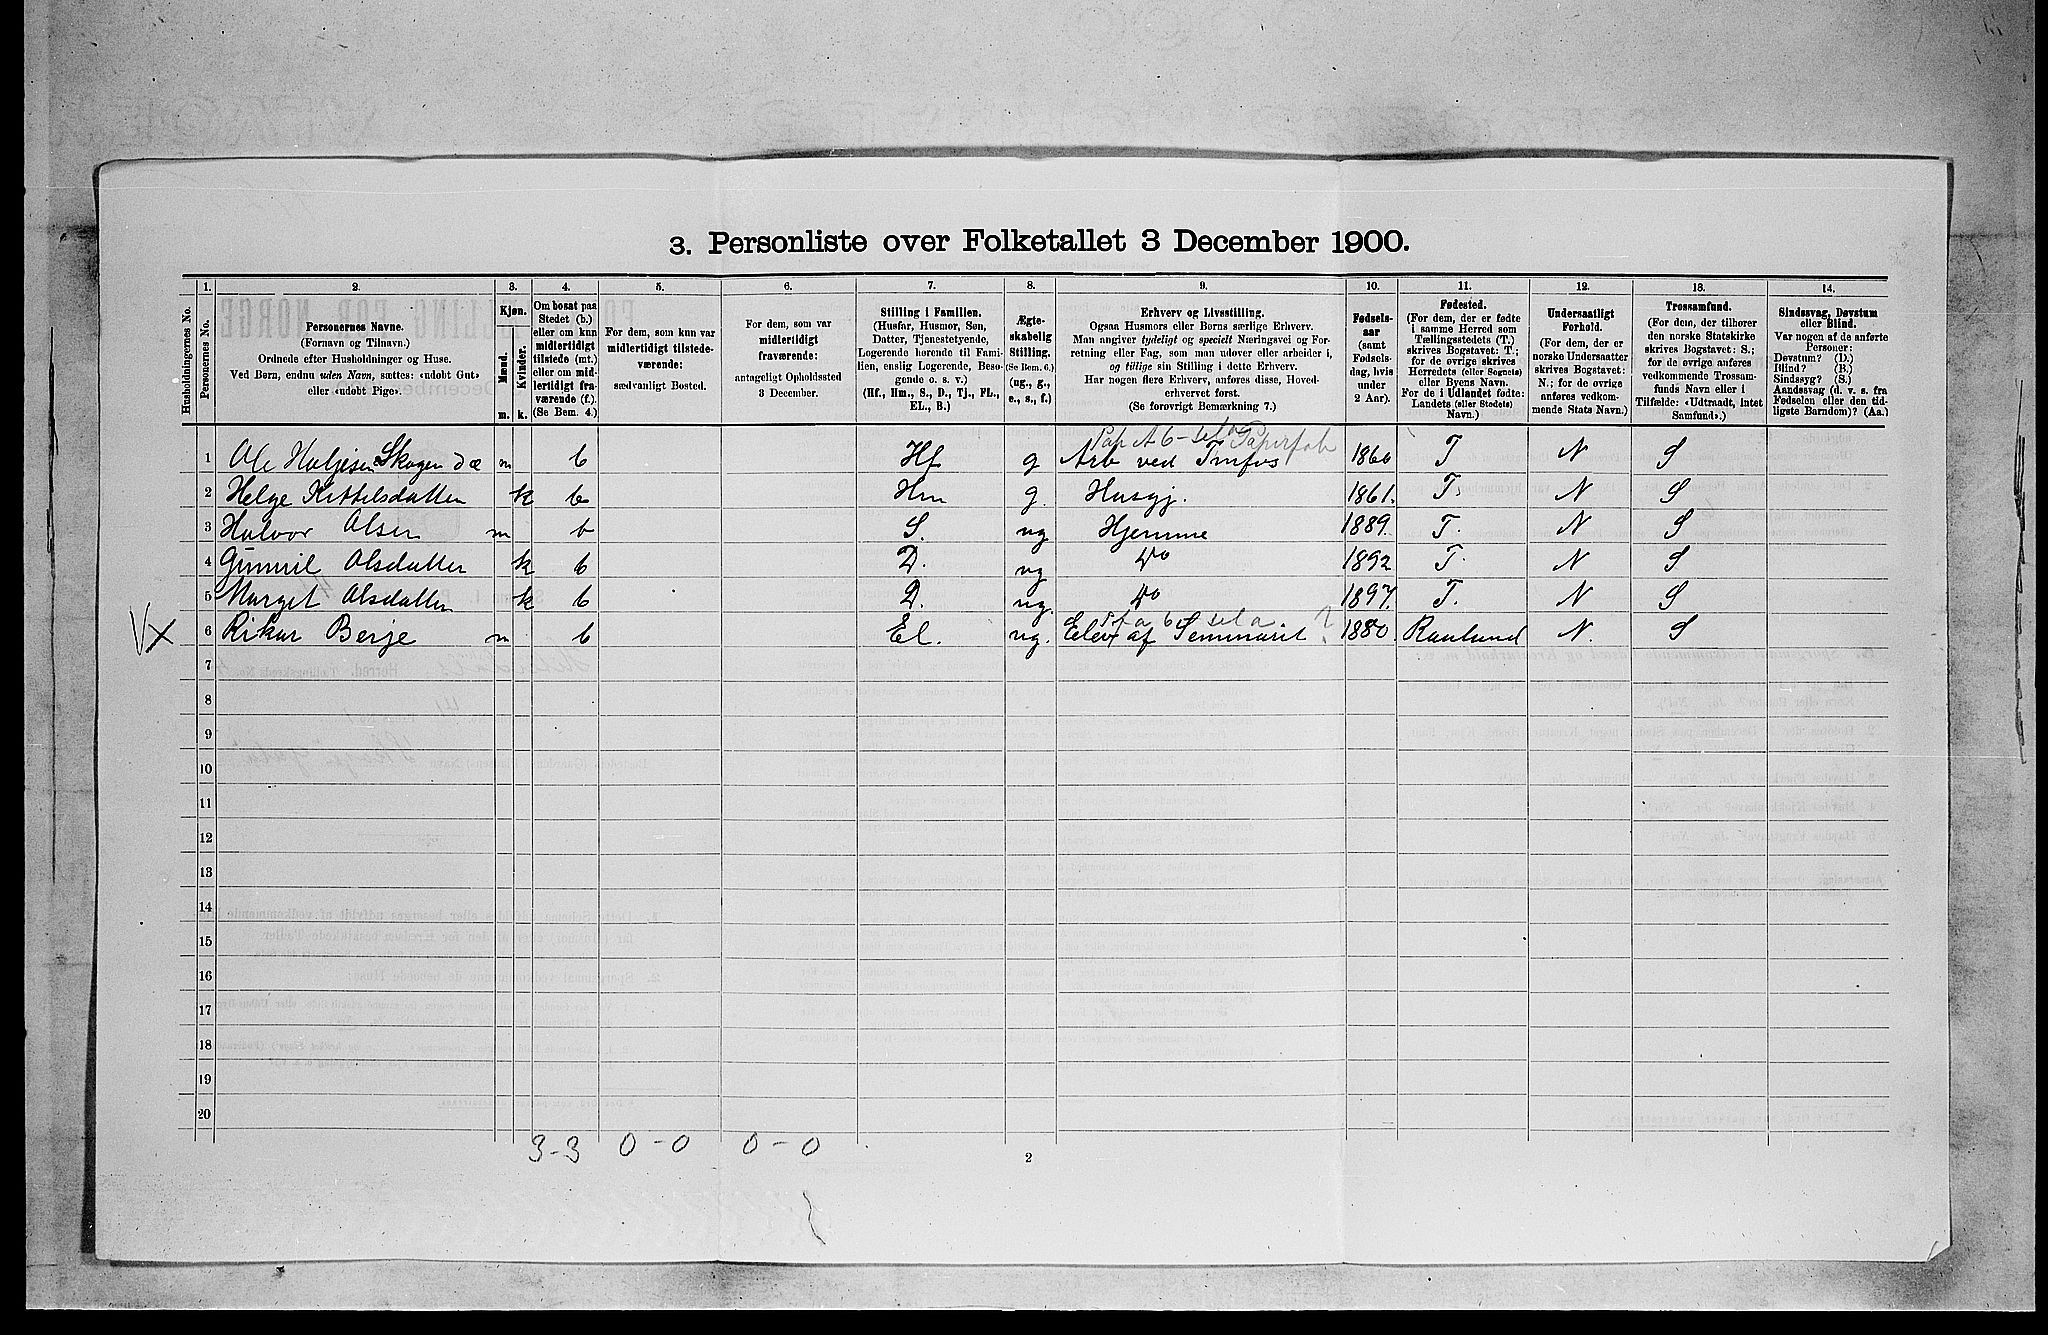 3. Personliste over Folketallet 3 December 1900.
1. 2. 3. 4. 5. 6. 7. 8. 9. 10. 11. 12. 13. 14.
Husholdningernes No.
Personernes No.
Personernes Navne.
(Fornavn og Tilnavn.)
Ordnede efter Husholdninger og Huse.
Ved Børn, endnu uden Navn, sættes: «udøbt Gut»
eller «udøbt Pige».
Kjøn.
Mænd.
Kvinder.
m. k.
Om bosat paa
Stedet (b.)
eller om kun
midlertidigt
tilstede (mt.)
eller om mid-
lertidigt fra-
værende (f.).
(Se Bem. 4.)
For dem, som kun var
midlertidigt tilstede-
værende:
sædvanligt Bosted.
For dem, som var
midlertidigt
fraværende:
antageligt Opholdssted
3 December.
Stilling i Familien.
(Husfar, Husmor, Søn,
Datter, Tjenestetyende,
Logerende hørende til Fami-
lien, enslig Logerende, Besø-
gende o. s. v.)
(Hf., Hm., S., D., Tj., FL.,
EL., B.)
Ægte-
skabelig
Stilling.
(Se Bem. 6.)
(ug., g.,
e., s., f.)
Erhverv og Livsstilling.
Ogsaa Husmors eller Børns særlige Erhverv.
Man angiver tydeligt og specielt Næringsvei og For-
retning eller Fag, som man udøver eller arbeider i,
og tillige sin Stilling i dette Erhverv.
Har nogen flere Erhverv, anføres disse, Hoved-
erhvervet først.
(Se forøvrigt Bemærkning 7.)
Fødsels-
aar
(samt
Fødsels-
dag, hvis
under
2 Aar).
Fødested.
(For dem, der er fødte
i samme Herred som
Tællingsstedets (T.)
skrives Bogstavet: T.;
for de øvrige skrives
Herredets (eller Sognets)
eller Byens Navn.
For de i Udlandet fødte:
Landets (eller Stedets)
Navn.)
Undersaatligt
Forhold.
(For dem, der er
norske Undersaatter
skrives Bogstavet:
N.; for de øvrige
anføres vedkom-
mende Stats Navn.)
Trossamfund.
(For dem, der tilhører
den norske Statskirke
skrives Bogstavet: S.;
for de øvrige anføres
vedkommende Trossam-
funds Navn eller i
Tilfælde: «Udtraadt, intet
Samfund».)
Sindssvag, Døvstum
eller Blind.
Var nogen af de anførte
Personer:
Døvstum? (D.)
Blind? (B.)
Sindssyg? (S.)
Aandssvag (d. v. s. fra
Fødselen eller den tid-
ligste Barndom)? (Aa.)
1 Ole Holjesen Skogen m b Hf g Arb ved Tinfos 1860 T N S
2 Helge Kittelsdatter k b Hm g. Husgj. 1861. T. N S
3 Halvor Olsen m b S. ug Hjemme 1889. T. N S
4 Gunnil Olsdatter k b D. ug Do 1892 T. N S
5 Marget Olsdatter k b D. ug. Do 1897. T. N S
6 Rikar Berje m b El. ug. Elev af Seminariet 1880. Raulund N. S
7
8
9
10
11
12
13
14
15
16
17
18
19
20
3-3 0-0 0-0
2